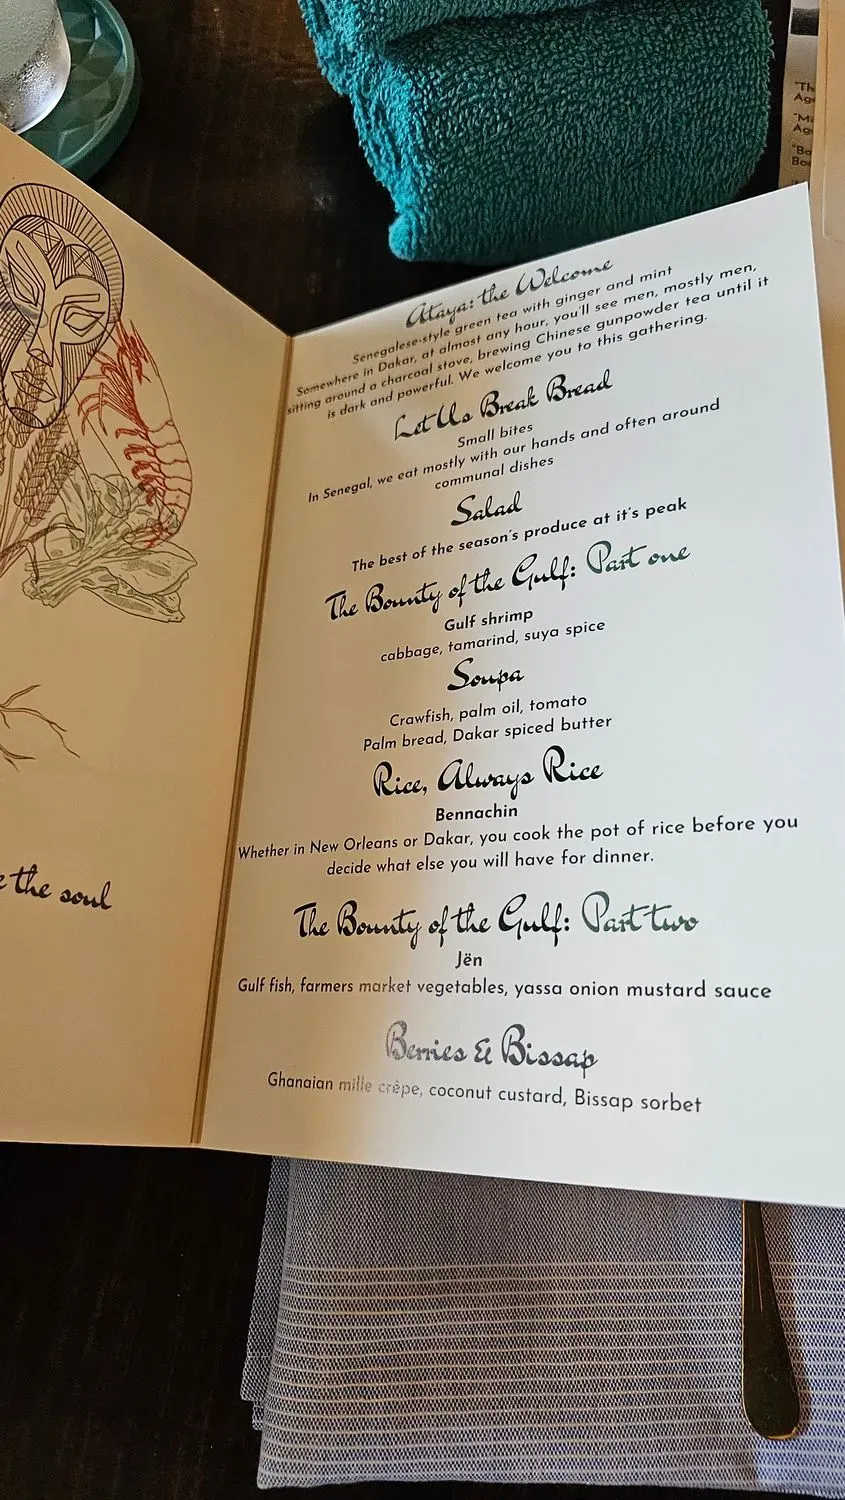 e the soul
Ataya: the Welcome
Senegalese-style green tea with ginger and mint
Somewhere in Dakar, at almost any hour, you'll see men, mostly men,
sitting around a charcoal stove, brewing Chinese gunpowder tea until it
is dark and powerful. We welcome you to this gathering.
Let Us Break Bread
Small bites
In Senegal, we eat mostly with our hands and often around
communal dishes
Salad
The best of the season's produce at it's peak
The Bounty of the Gulf: Part one
Gulf shrimp
cabbage, tamarind, suya spice
Soupa
Crawfish, palm oil, tomato
Palm bread, Dakar spiced butter
Rice, Always Rice
Bennachin
Whether in New Orleans or Dakar, you cook the pot of rice before you
decide what else you will have for dinner.
The Bounty of the Gulf: Part two
Jën
Gulf fish, farmers market vegetables, yassa onion mustard sauce
Berries & Bissap
Ghanaian mille crêpe, coconut custard, Bissap sorbet